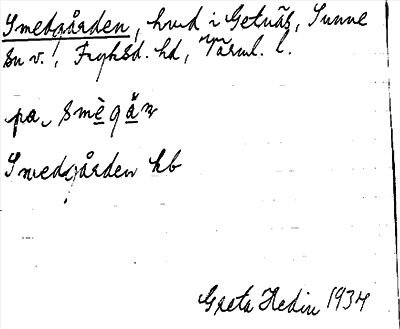 Smedgården, hmd i Getnäs, Sunne
sn v.!, Fryksd. hd, Värml. l.
pa.
Smedgården kb
Greta Hedin 1934